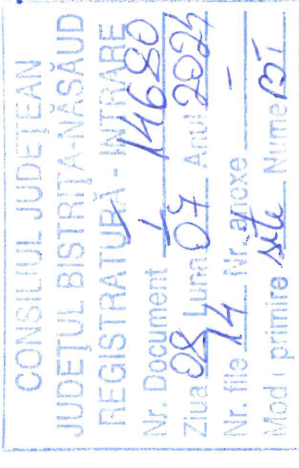 CONSILIUL JUDEŢEAN
JUDEŢUL BISTRIŢA-NĂSĂUD
REGISTRATURĂ - INTRARE
Nr. Document I / 14680
Ziua 08 Luna 07 Anul 2024
Nr. file 14 Nr. anexe -
Mod primire site Nume BT